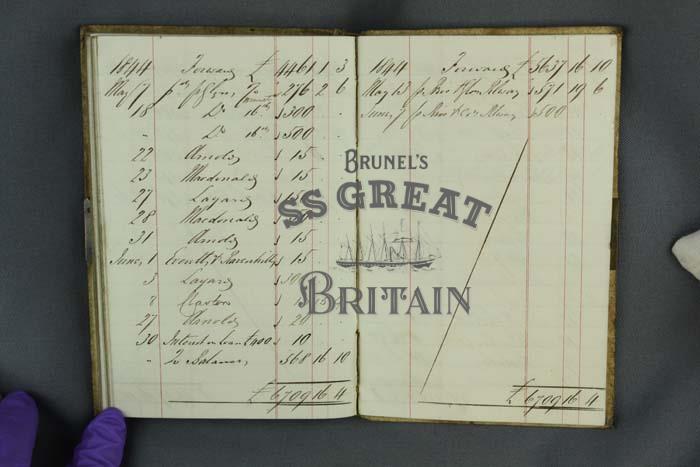 1844 Forward £ 4461 1 3
May 7 276 2 6
18 Do 16th 300
" Do 16th 500
22 Arnold 15
23 Macdonald 15
27 Layard
28 Macdonald
31 Arnold 15
June 1 15
3 Layard
Arnold 20
27
30 Interest on Loan £400 10
" To Balance, 568 16 10
£6709 16 4
1844 Forward £5637 16 10
May 13 571 19 6
June 7 500
£6709 16 4
BRUNEL'S
SS GREAT
BRITAIN